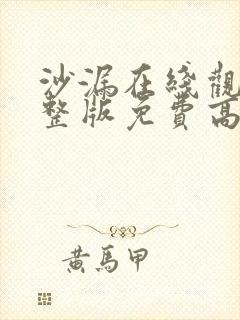 沙漏在綫觀
整版免費高
黃馬甲